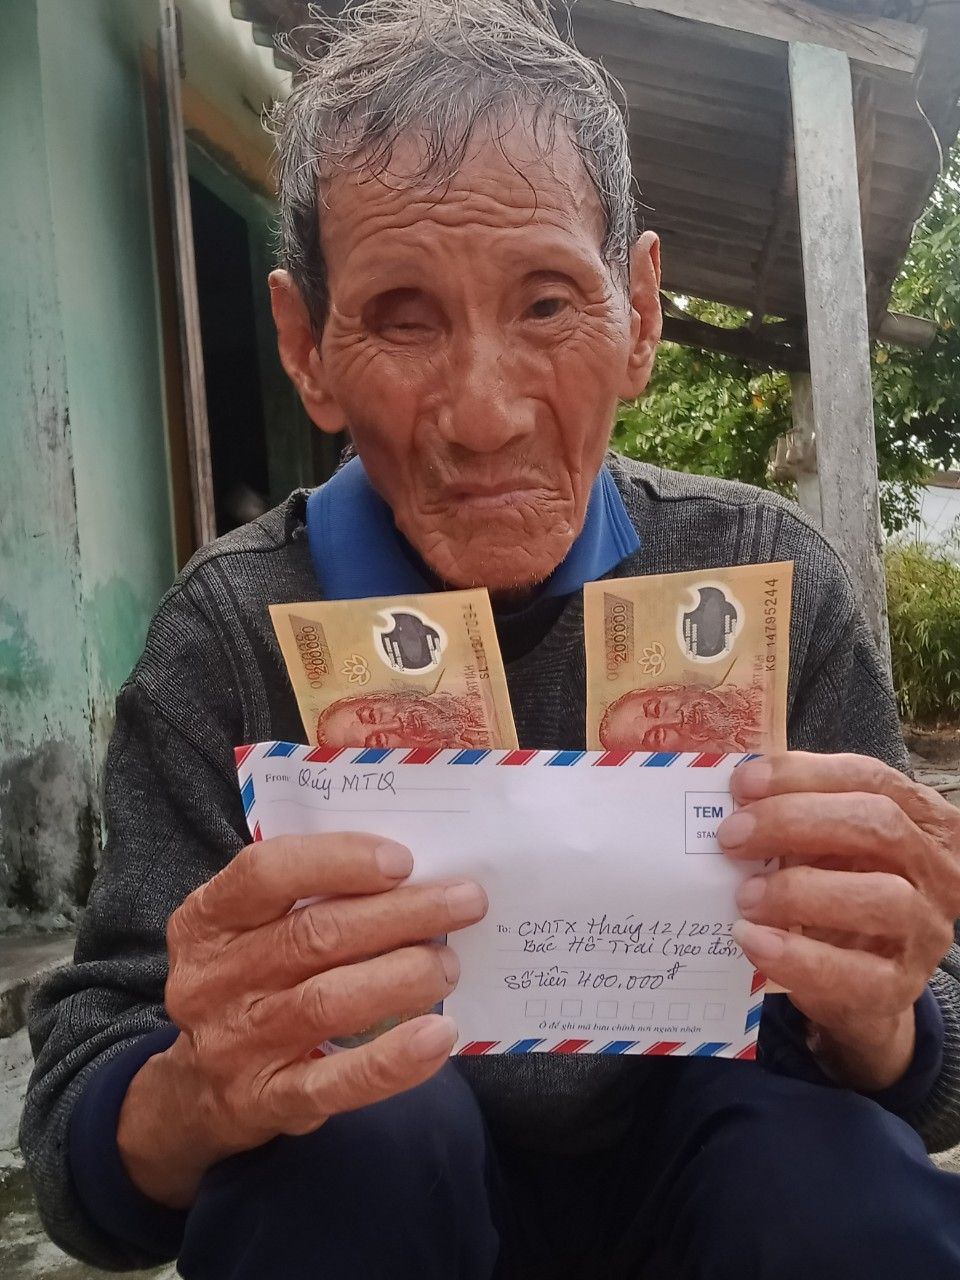 200000
SL 11307094
200000
KG 14795244
From: Qúy MTQ
TEM
To: CMTX tháng 12/2023
Bác Hồ Trai (neo đơn)
Số tiền 400.000đ
Ô để ghi mã bưu chính nơi người nhận